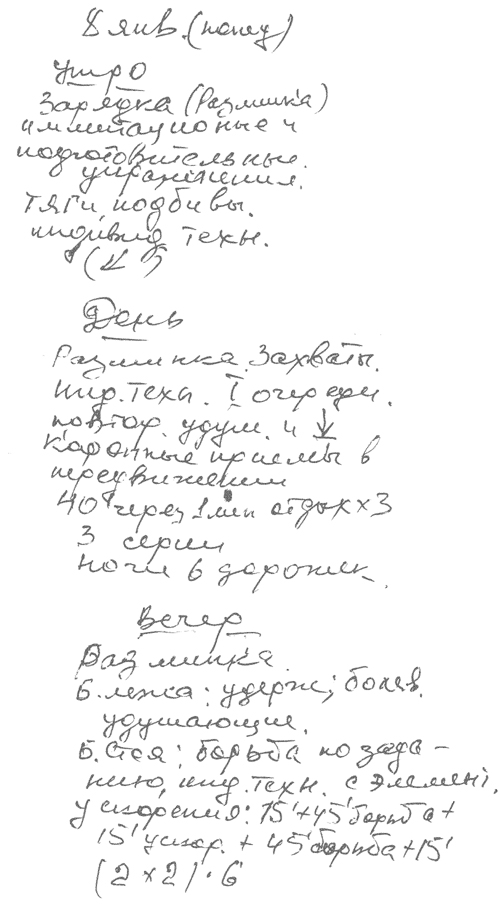 8 янв. (понед)
Утро
Зарядка (Разминка)
иммитационные и
подготовительные
упражнения.
Тяги, подбивы.
индивид. техн.
День
Разминка. Захваты.
Инд. техн. I очереди.
повтор. удуш. и ↓
Коронные приемы в
передвижении
40" через 1 мин отдых х 3
3 серии
Ноги 6 дорожек.
Вечер
Разминка.
Б. лежа: удерж; болев.
удушающие.
Б. стоя: борьба по зада-
нию, инд. техн. с элемент.
ускорения: 15'+45' борьба +
15' ускор. + 45' борьба + 15'
(2 х 2) · 6